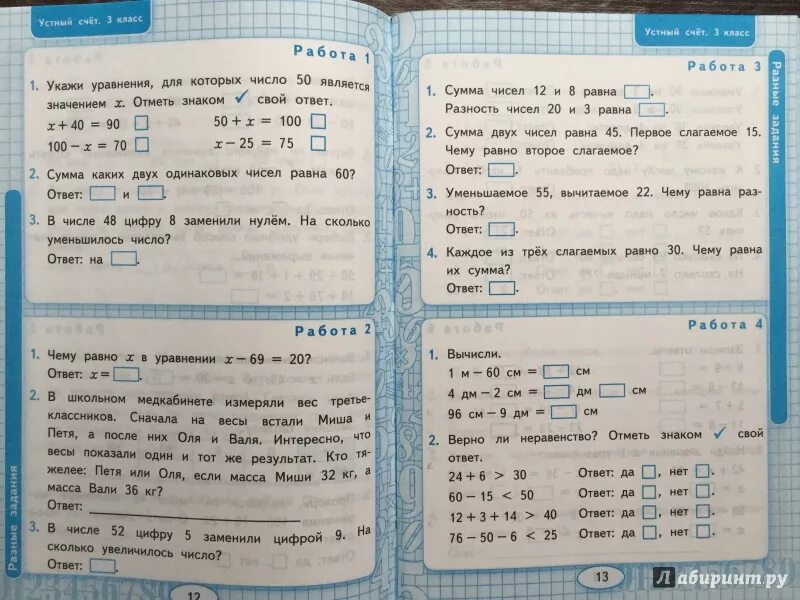 Устный счёт. 3 класс
Работа 1
1. Укажи уравнения, для которых число 50 является
значением x. Отметь знаком ✓ свой ответ.
x + 40 = 90 50 + x = 100
100 − x = 70 x − 25 = 75
2. Сумма каких двух одинаковых чисел равна 60?
Ответ: и .
3. В числе 48 цифру 8 заменили нулём. На сколько
уменьшилось число?
Ответ: на .
Работа 2
1. Чему равно x в уравнении x − 69 = 20?
Ответ: x = .
2. В школьном медкабинете измеряли вес третье-
классников. Сначала на весы встали Миша и
Петя, а после них Оля и Валя. Интересно, что
весы показали один и тот же результат. Кто тя-
желее: Петя или Оля, если масса Миши 32 кг, а
масса Вали 36 кг?
Ответ:
3. В числе 52 цифру 5 заменили цифрой 9. На
сколько увеличилось число?
Ответ: .
Разные задания
12
Устный счёт. 3 класс
Работа 3
1. Сумма чисел 12 и 8 равна .
Разность чисел 20 и 3 равна .
2. Сумма двух чисел равна 45. Первое слагаемое 15.
Чему равно второе слагаемое?
Ответ: .
3. Уменьшаемое 55, вычитаемое 22. Чему равна раз-
ность?
Ответ: .
4. Каждое из трёх слагаемых равно 30. Чему равна
их сумма?
Ответ: .
Работа 4
1. Вычисли.
1 м − 60 см = см
4 дм − 2 см = дм см
96 см − 9 дм = см
2. Верно ли неравенство? Отметь знаком ✓ свой
ответ.
24 + 6 > 30 Ответ: да , нет .
60 − 15 < 50 Ответ: да , нет .
12 + 3 + 14 > 40 Ответ: да , нет .
76 − 50 − 6 < 25 Ответ: да , нет .
Разные задания
13
Лабиринт.ру